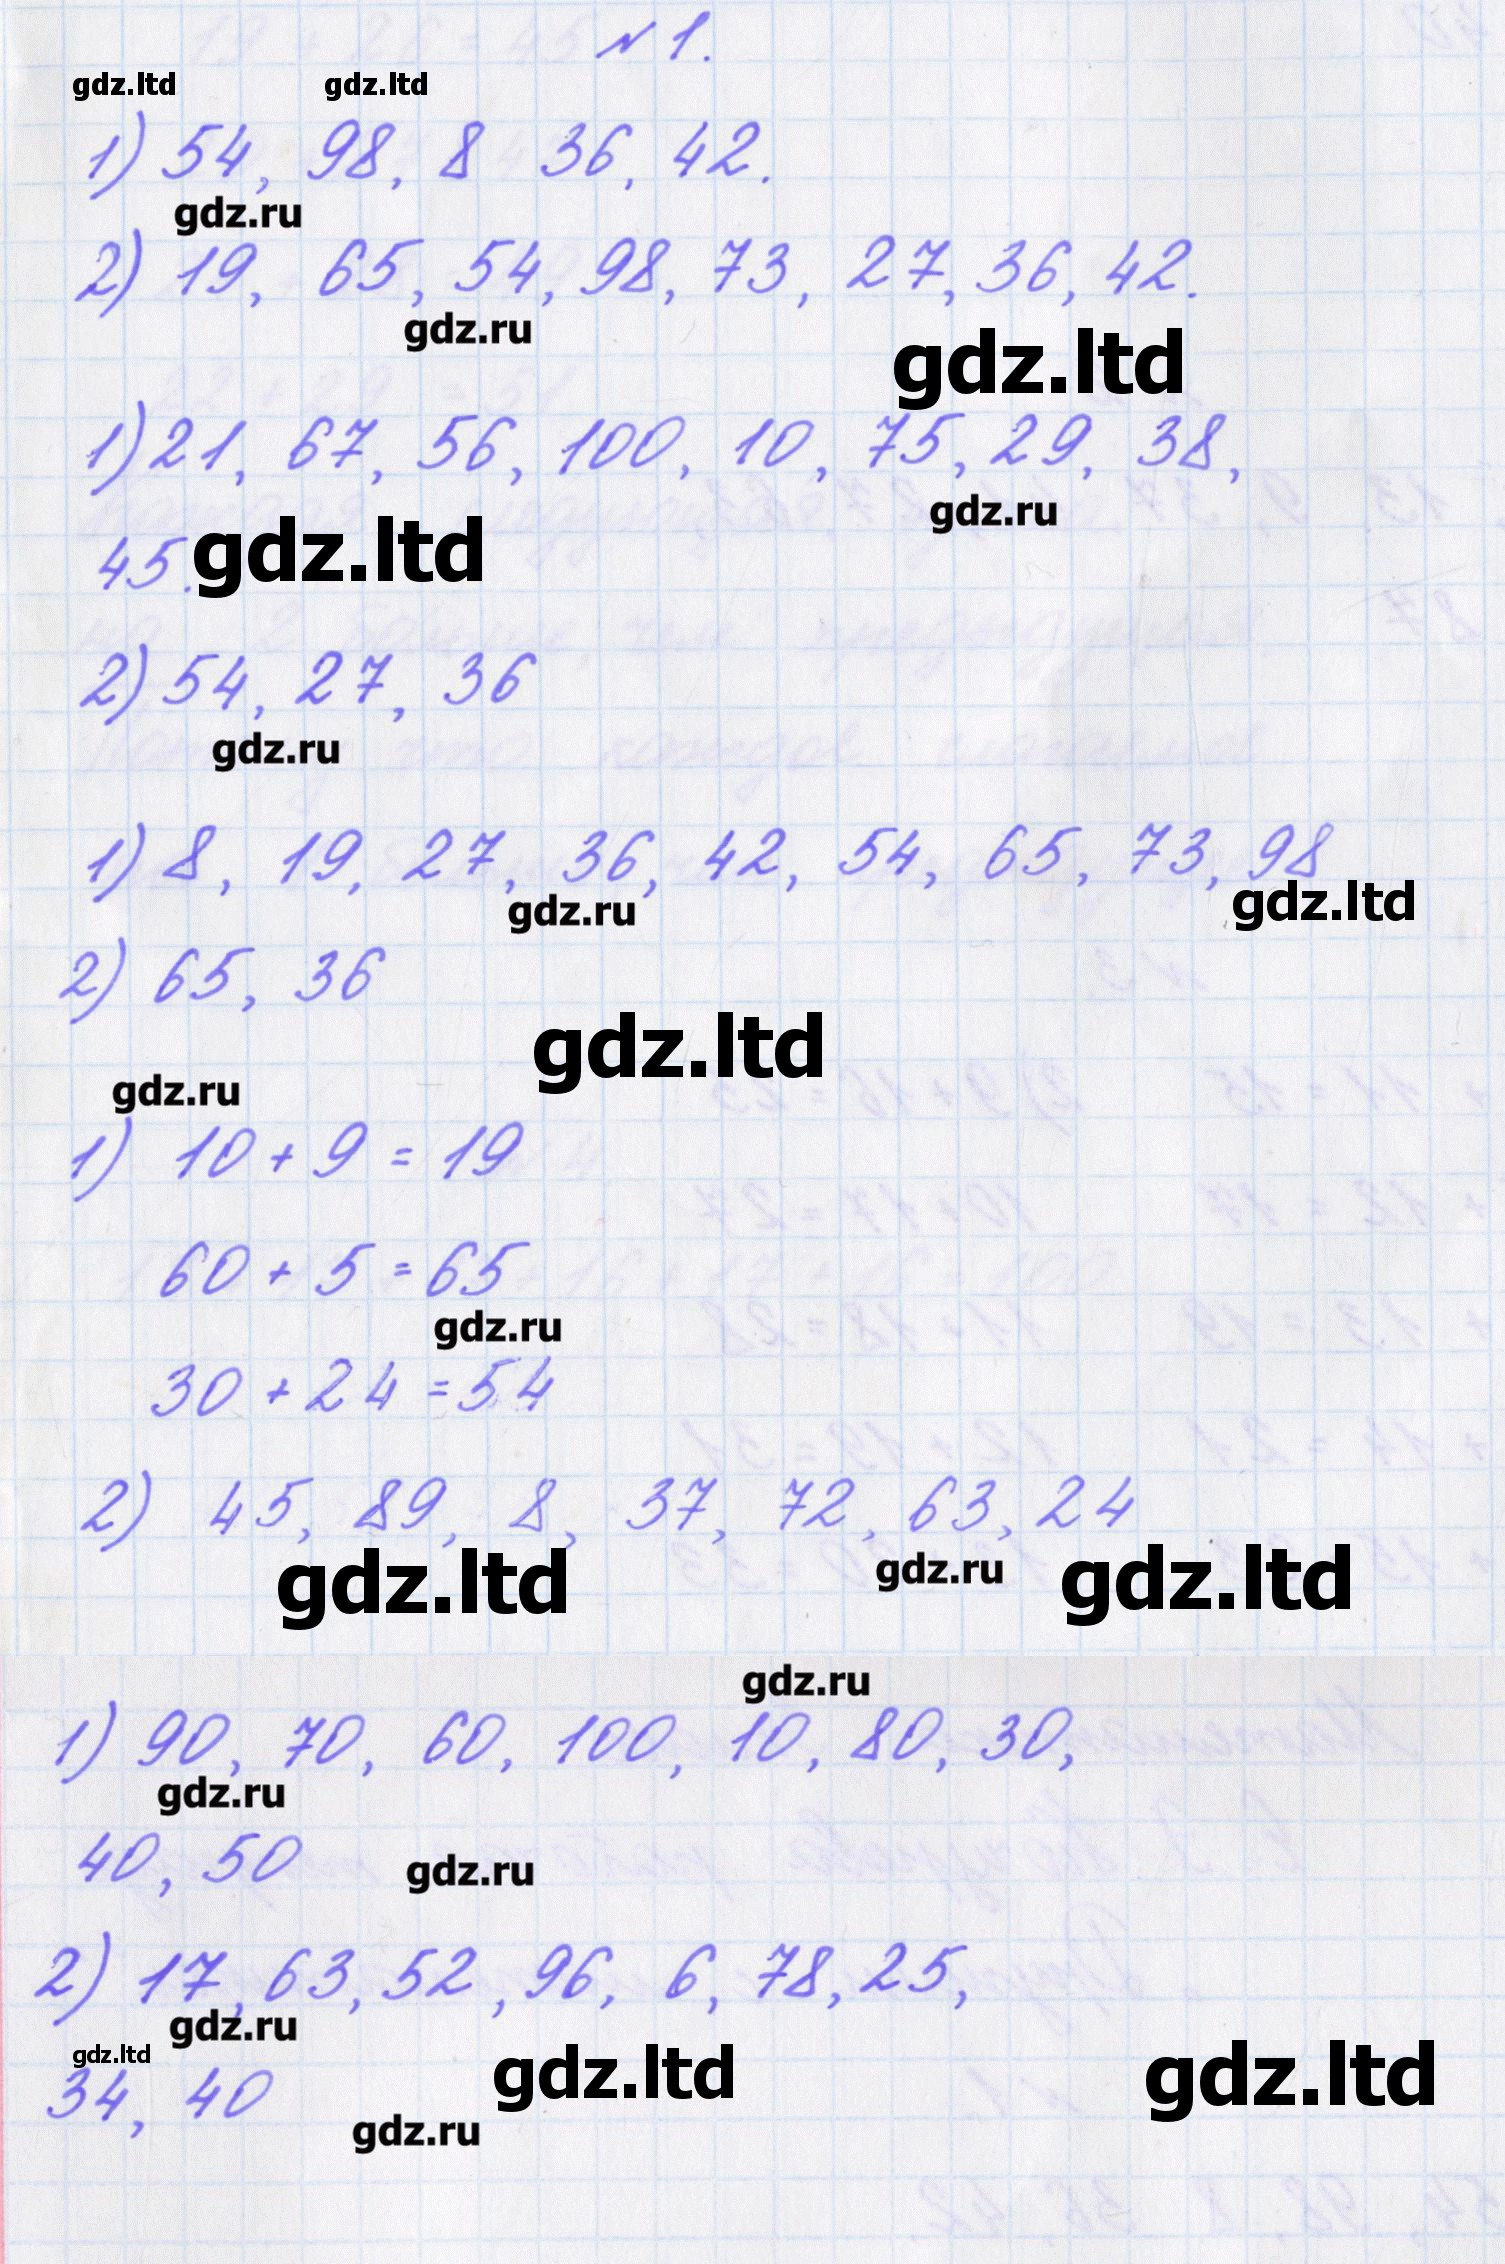 № 1.
gdz.ltd gdz.ltd
1) 54, 98, 8 36, 42.
gdz.ru
2) 19, 65, 54, 98, 73, 27, 36, 42.
gdz.ru
gdz.ltd
1) 21, 67, 56, 100, 10, 75, 29, 38,
gdz.ru
45. gdz.ltd
2) 54, 27, 36
gdz.ru
1) 8, 19, 27, 36, 42, 54, 65, 73, 98
gdz.ru gdz.ltd
2) 65, 36
gdz.ltd
gdz.ru
1) 10 + 9 = 19
60 + 5 = 65
gdz.ru
30 + 24 = 54
2) 45, 89, 8, 37, 72, 63, 24
gdz.ltd gdz.ru gdz.ltd
gdz.ru
1) 90, 70, 60, 100, 10, 80, 30,
gdz.ru
40, 50 gdz.ru
2) 17, 63, 52, 96, 6, 78, 25,
gdz.ru
gdz.ltd gdz.ltd gdz.ltd
34, 40
gdz.ru